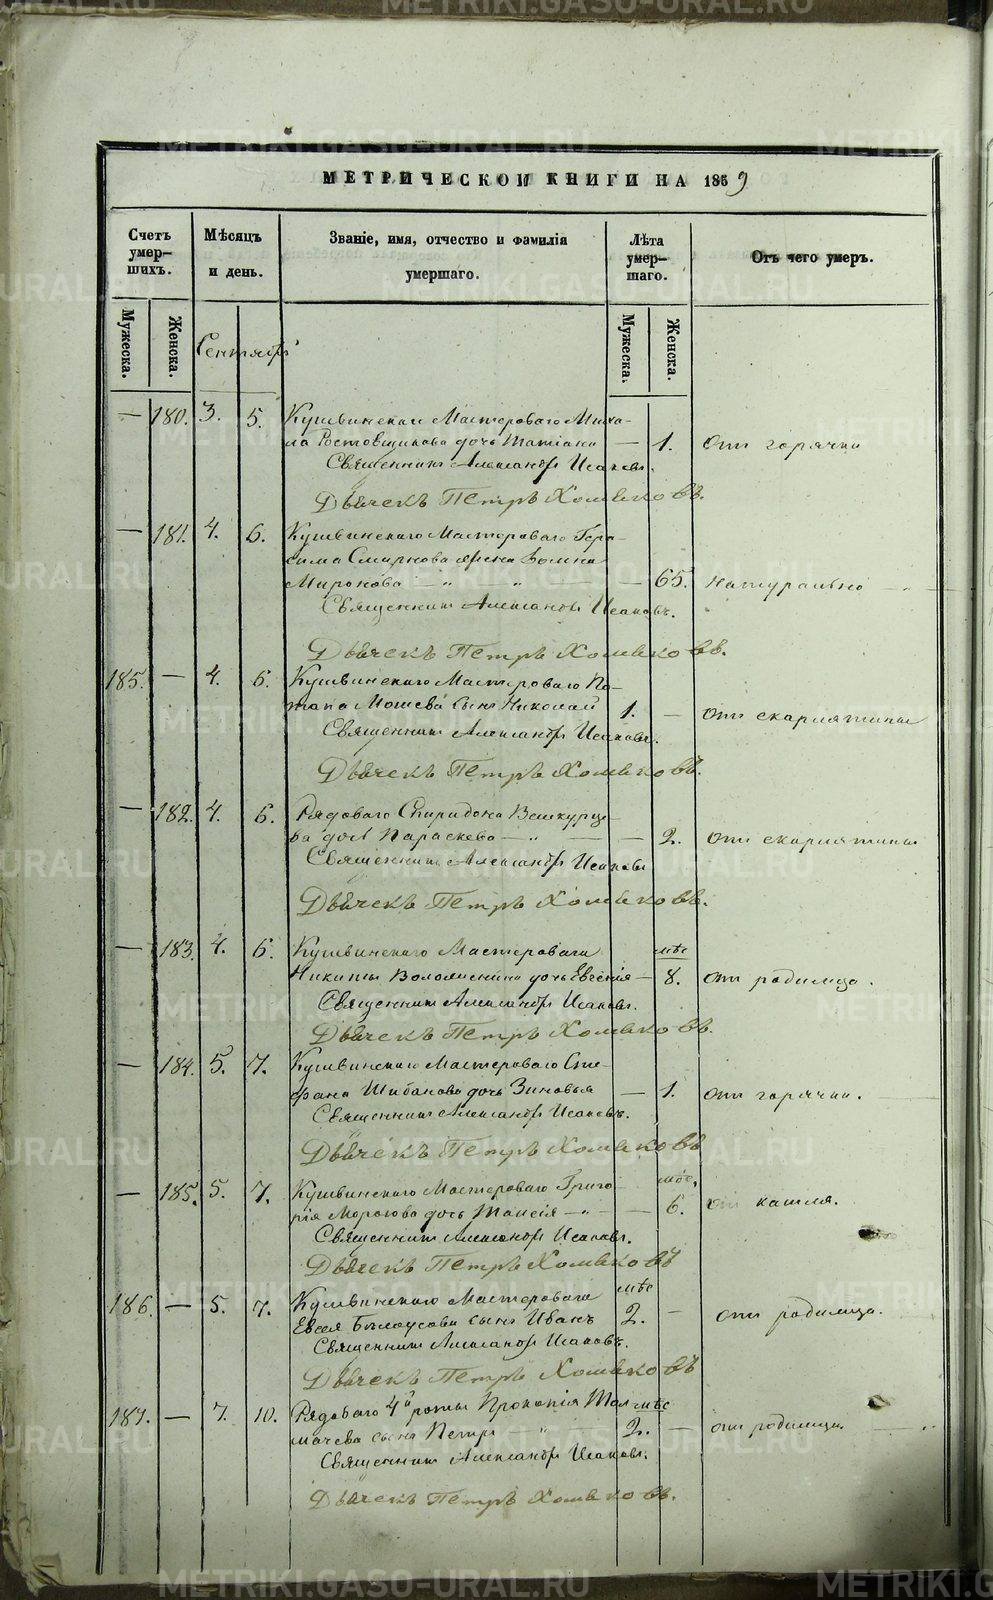 МЕТРИЧЕСКОЙ КНИГИ НА 1859
Счетъ умер-шихъ.
Мѣсяцъ и день.
Званіе, имя, отчество и фамилія умершаго.
Лѣта умер-шаго.
Отъ чего умеръ.
Мужеска.
Женска.
Сентябрь
Мужеска.
Женска.
— 180. 3. 5. Кушвинскаго Мастероваго Миха-
ла Ростовщикова дочь Татіана — 1. отъ горячки
Священникъ Александръ Исаковъ.
Дьячекъ Петръ Хомяковъ.
— 181. 4. 6. Кушвинскаго Мастероваго Гера-
сима Смирнова жена Фомина
Миронова — „ „ — — 65. натурально
Священникъ Александръ Исаковъ.
Дьячекъ Петръ Хомяковъ.
185. — 4. 6. Кушвинскаго Мастероваго По-
тапа сынъ Николай 1. — отъ скарлятины
Священникъ Александръ Исаковъ.
Дьячекъ Петръ Хомяковъ.
— 182. 4. 6. Рядоваго Спиридона
ва дочь Параскева — „ — — 2. отъ скарлятины
Священникъ Александръ Исаковъ
Дьячекъ Петръ Хомяковъ.
— 183. 4. 6. Кушвинскаго Мастероваго мѣс
Никиты дочь Евгенія — 8. отъ родимца.
Священникъ Александръ Исаковъ.
Дьячекъ Петръ Хомяковъ.
— 184. 5. 7. Кушвинскаго Мастероваго Сте-
фана Шибанова дочь Зиновья — 1. отъ горячки.
Священникъ Александръ Исаковъ.
Дьячекъ Петръ Хомяковъ
— 185. 5. 7. Кушвинскаго Мастероваго Григо- мѣс,
рія Морозова дочь Таисія — „ — — 6. отъ кашля.
Священникъ Александръ Исаковъ.
Дьячекъ Петръ Хомяковъ
186. — 5. 7. Кушвинскаго Мастероваго мѣс
Евсея Бѣлоусова сынъ Иванъ 2. — отъ родимца.
Священникъ Александръ Исаковъ.
Дьячекъ Петръ Хомяковъ
187. — 7. 10. Рядоваго 4й роты Прокопія Тол- мѣс
мачева сынъ Петръ „ 2. — отъ родимца.
Священникъ Александръ Исаковъ.
Дьячекъ Петръ Хомяковъ.
METRIKI.GASO-URAL.RU